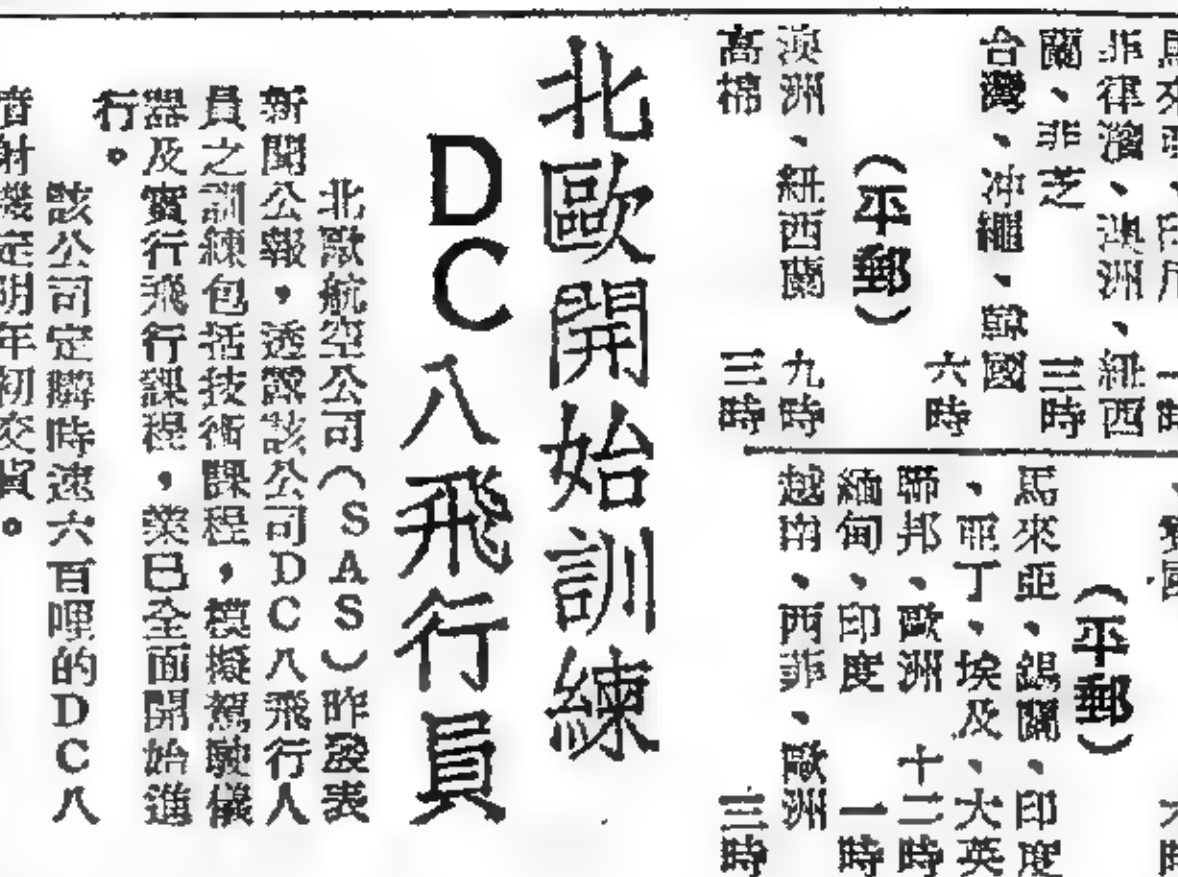 菲律濱、澳洲、紐西
蘭、菲芝　三時
台灣、冲繩、韓國
六時
（平郵）
澳洲、紐西蘭　九時
高棉　三時
（平郵）
馬來亞、錫蘭、印度
、亞丁、埃及、大英
聯邦、歐洲　十二時
緬甸、印度　一時
越南、西菲、歐洲
三時
北歐開始訓練
DC八飛行員
北歐航空公司（SAS）昨發表
新聞公報，透露該公司DC八飛行人
員之訓練包括技術課程，模擬駕駛儀
器及實行飛行課程，業已全面開始進
行。
該公司定購時速六百哩的DC八
射機定明年初交貨。